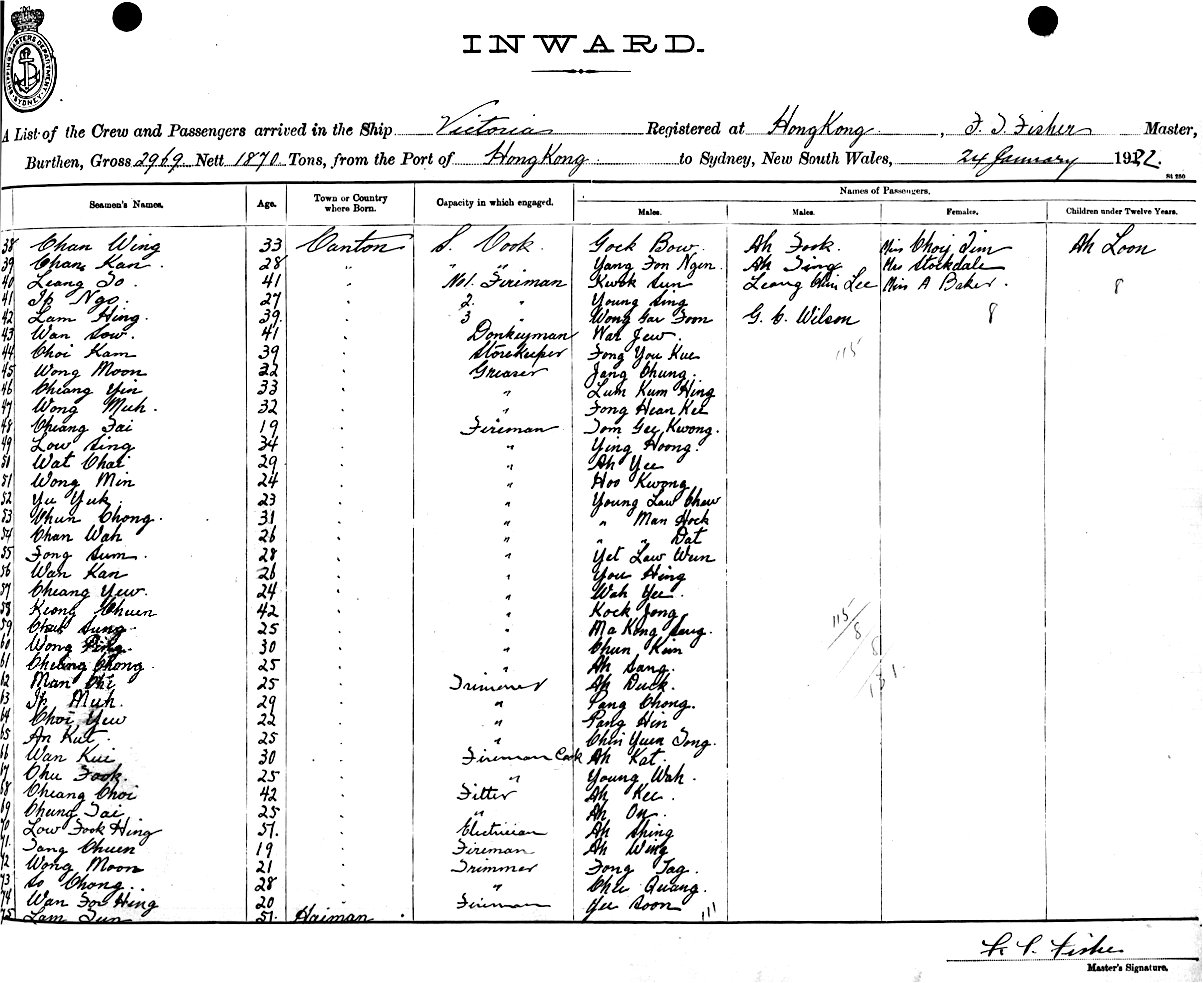 SHIPPING MASTERS DEPARTMENT. SYDNEY.
INWARD.
A List of the Crew and Passengers arrived in the Ship Victoria Registered at HongKong, F. T. Fisher Master,
Burthen, Gross 2969 Nett 1870 Tons, from the Port of HongKong to Sydney, New South Wales, 24 January 1922.
Names of Passengers.
Seamen's Names. Age. Town or Country where Born. Capacity in which engaged. Males. Males. Females. Children under Twelve Years.
38 Chan Wing 33 Canton S. Cook. Gock Bow. Ah Fook. Miss Choy Tim Ah Loon
39 Chan Kan 28 " " " Yang Fon Ngen Ah Ting Mrs Stockdale
40 Leang To 41 " No 1. Fireman Kwok Sun Leong Chin Lee Miss A Baker. 8
41 Ip Ngo. 27 " 2. " Young Sing
42 Lam Hing. 39 " 3 " Wong Gar Foon G. C. Wilson 8
43 Wan Sow. 41 " Donkeyman War Jew.
44 Choi Kam 39 " Storekeeper Fong You Kue 115
45 Wong Moon 32 " Greaser Jang Chung.
46 Cheang Yin 33 " " Lum Kum Hing
47 Wong Muh. 32 " " Fong Hean Kee
48 Cheang Tai 19 " Fireman Tom Gee Kwong.
49 Low Sing 34 " " Ying Hoong.
50 Wat Chai 29 " " Ah Yee
51 Wong Min 24 " " Hoo Kwong
52 Yu Yuk. 23 " " Young Law Chew
53 Chun Chong. 31 " " " Man Hock
54 Chan Wah 26 " " " " Dat
55 Fong Sum. 28 " " Yet Law Wun
56 Wan Kan 26 " " You Hing
57 Cheang Yew. 24 " " Wah Yee
58 Keong Chuen 42 " " Kock Jong 115
59 Sung. 25 " " Ma Kong Seng. 8
60 Wong Ping. 30 " " Chun Kim 8
61 Cheung Chong. 25 " " Ah Sang. 131.
62 Man Chi 25 " Trimmer Ah Duck.
63 Ip Muh. 29 " " Pang Chong.
64 Choi Yew 22 " " Pang Hin
65 An Kut. 25 " " Chin Yuen Tong.
66 Wan Kui 30 " Fireman Cook Ah Kat.
67 Chu Fook. 25 " " Young Wah.
68 Cheang Choi 42 " Fitter Ah Kee.
69 Cheung Tai 25 " " Ah On.
70 Low Fook Hing 51. " Electrician Ah Shing
71. Tang Chuen 19 " Fireman Ah Wing
72 Wong Moon 21 " Trimmer Fong Tag.
73 So Chong. 28 " " Chee Quang.
74 Wan For Hing 20 " Fireman Yee Soon 111
75 Lam Tun 51. Haiman
Fisher
Master's Signature.